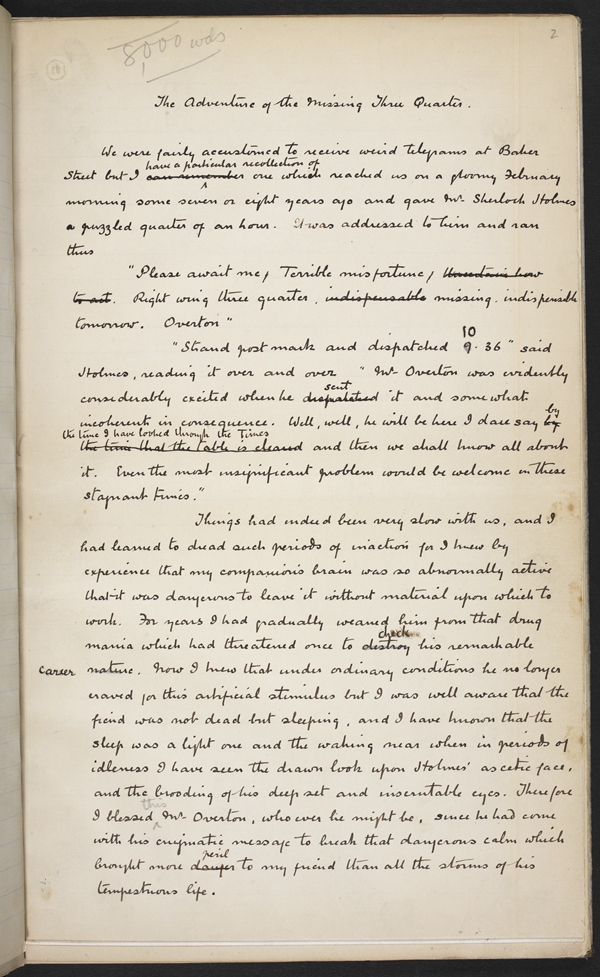 8,000 wds
2
The Adventure of the Missing Three Quarter.
We were fairly accustomed to receive weird telegrams at Baker
have a particular recollection of
Street but I can remember one which reached us on a gloomy February
morning some seven or eight years ago and gave Mr Sherlock Holmes
a puzzled quarter of an hour. It was addressed to him and ran
thus
"Please await me, Terrible misfortune, Uncertain how
to act. Right wing three quarter, indispensable missing. indispensable
tomorrow. Overton"
10
"Strand post mark and dispatched 9.36" said
Holmes, reading it over and over "Mr Overton was evidently
sent
considerably excited when he dispatched it and somewhat
incoherent in consequence. Well, well, he will be here I dare say by
by
the time I have looked through the Times
the time that the table is cleared and then we shall know all about
it. Even the most insignificant problem would be welcome in these
stagnant times."
Things had indeed been very slow with us, and I
had learned to dread such periods of inaction for I knew by
experience that my companion's brain was so abnormally active
that it was dangerous to leave it without material upon which to
work. For years I had gradually weaned him from that drug
check
mania which had threatened once to destroy his remarkable
career nature. Now I knew that under ordinary conditions he no longer
craved for this artificial stimulus but I was well aware that the
fiend was not dead but sleeping, and I have known that the
sleep was a light one and the waking near when in periods of
idleness I have seen the drawn look upon Holmes' ascetic face,
and the brooding of his deep set and inscrutable eyes. Therefore
this
I blessed Mr Overton, who ever he might be, since he had come
with his enigmatic message to break that dangerous calm which
peril
brought more danger to my friend than all the storms of his
tempestuous life.